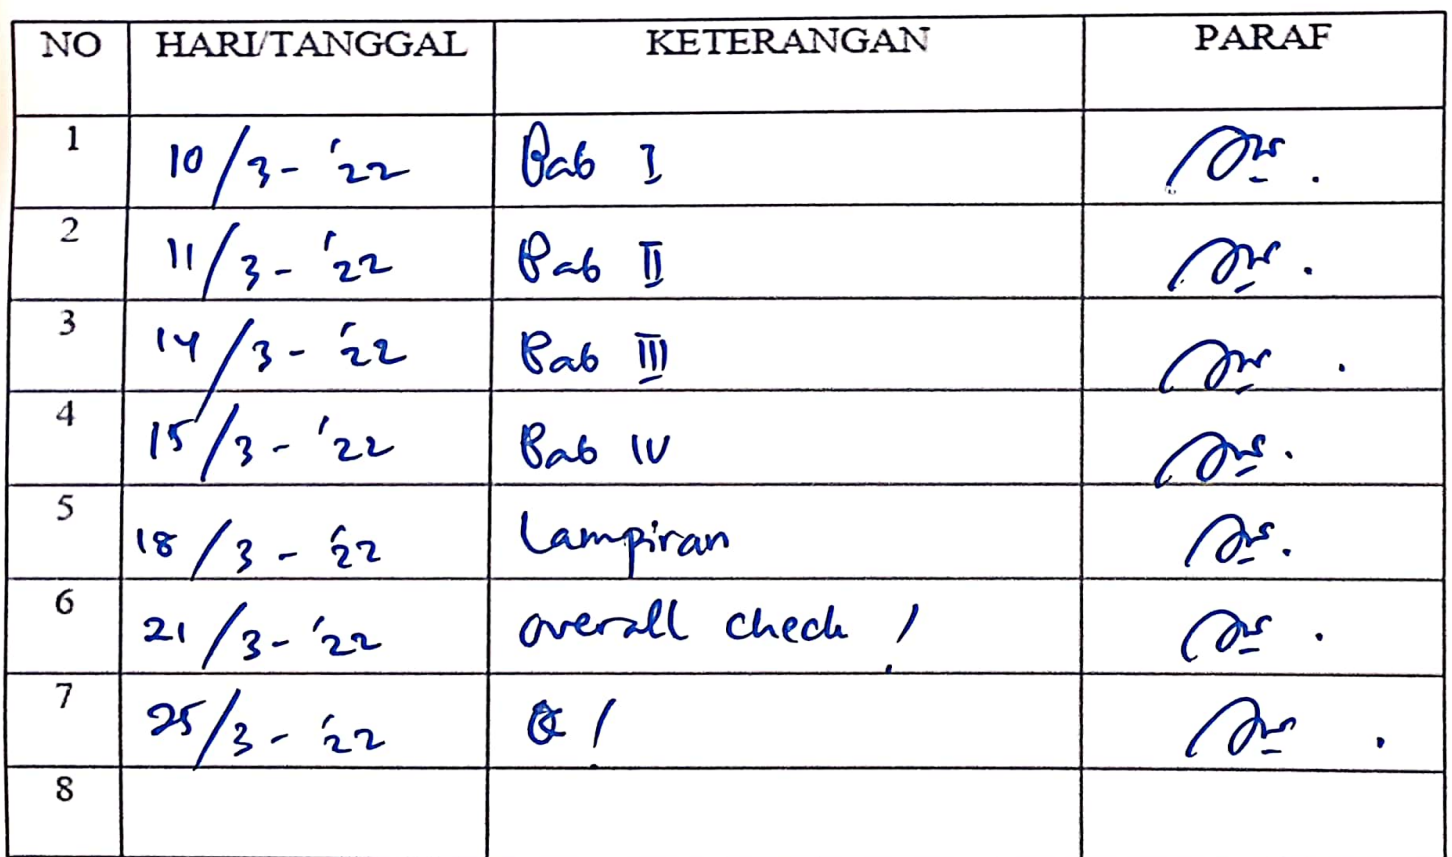 NO HARI/TANGGAL KETERANGAN PARAF
1 10/3-'22 Bab I
2 11/3-'22 Bab II
3 14/3-'22 Bab III
4 15/3-'22 Bab IV
5 18/3-'22 Lampiran
6 21/3-'22 overall check !
7 25/3-'22
8